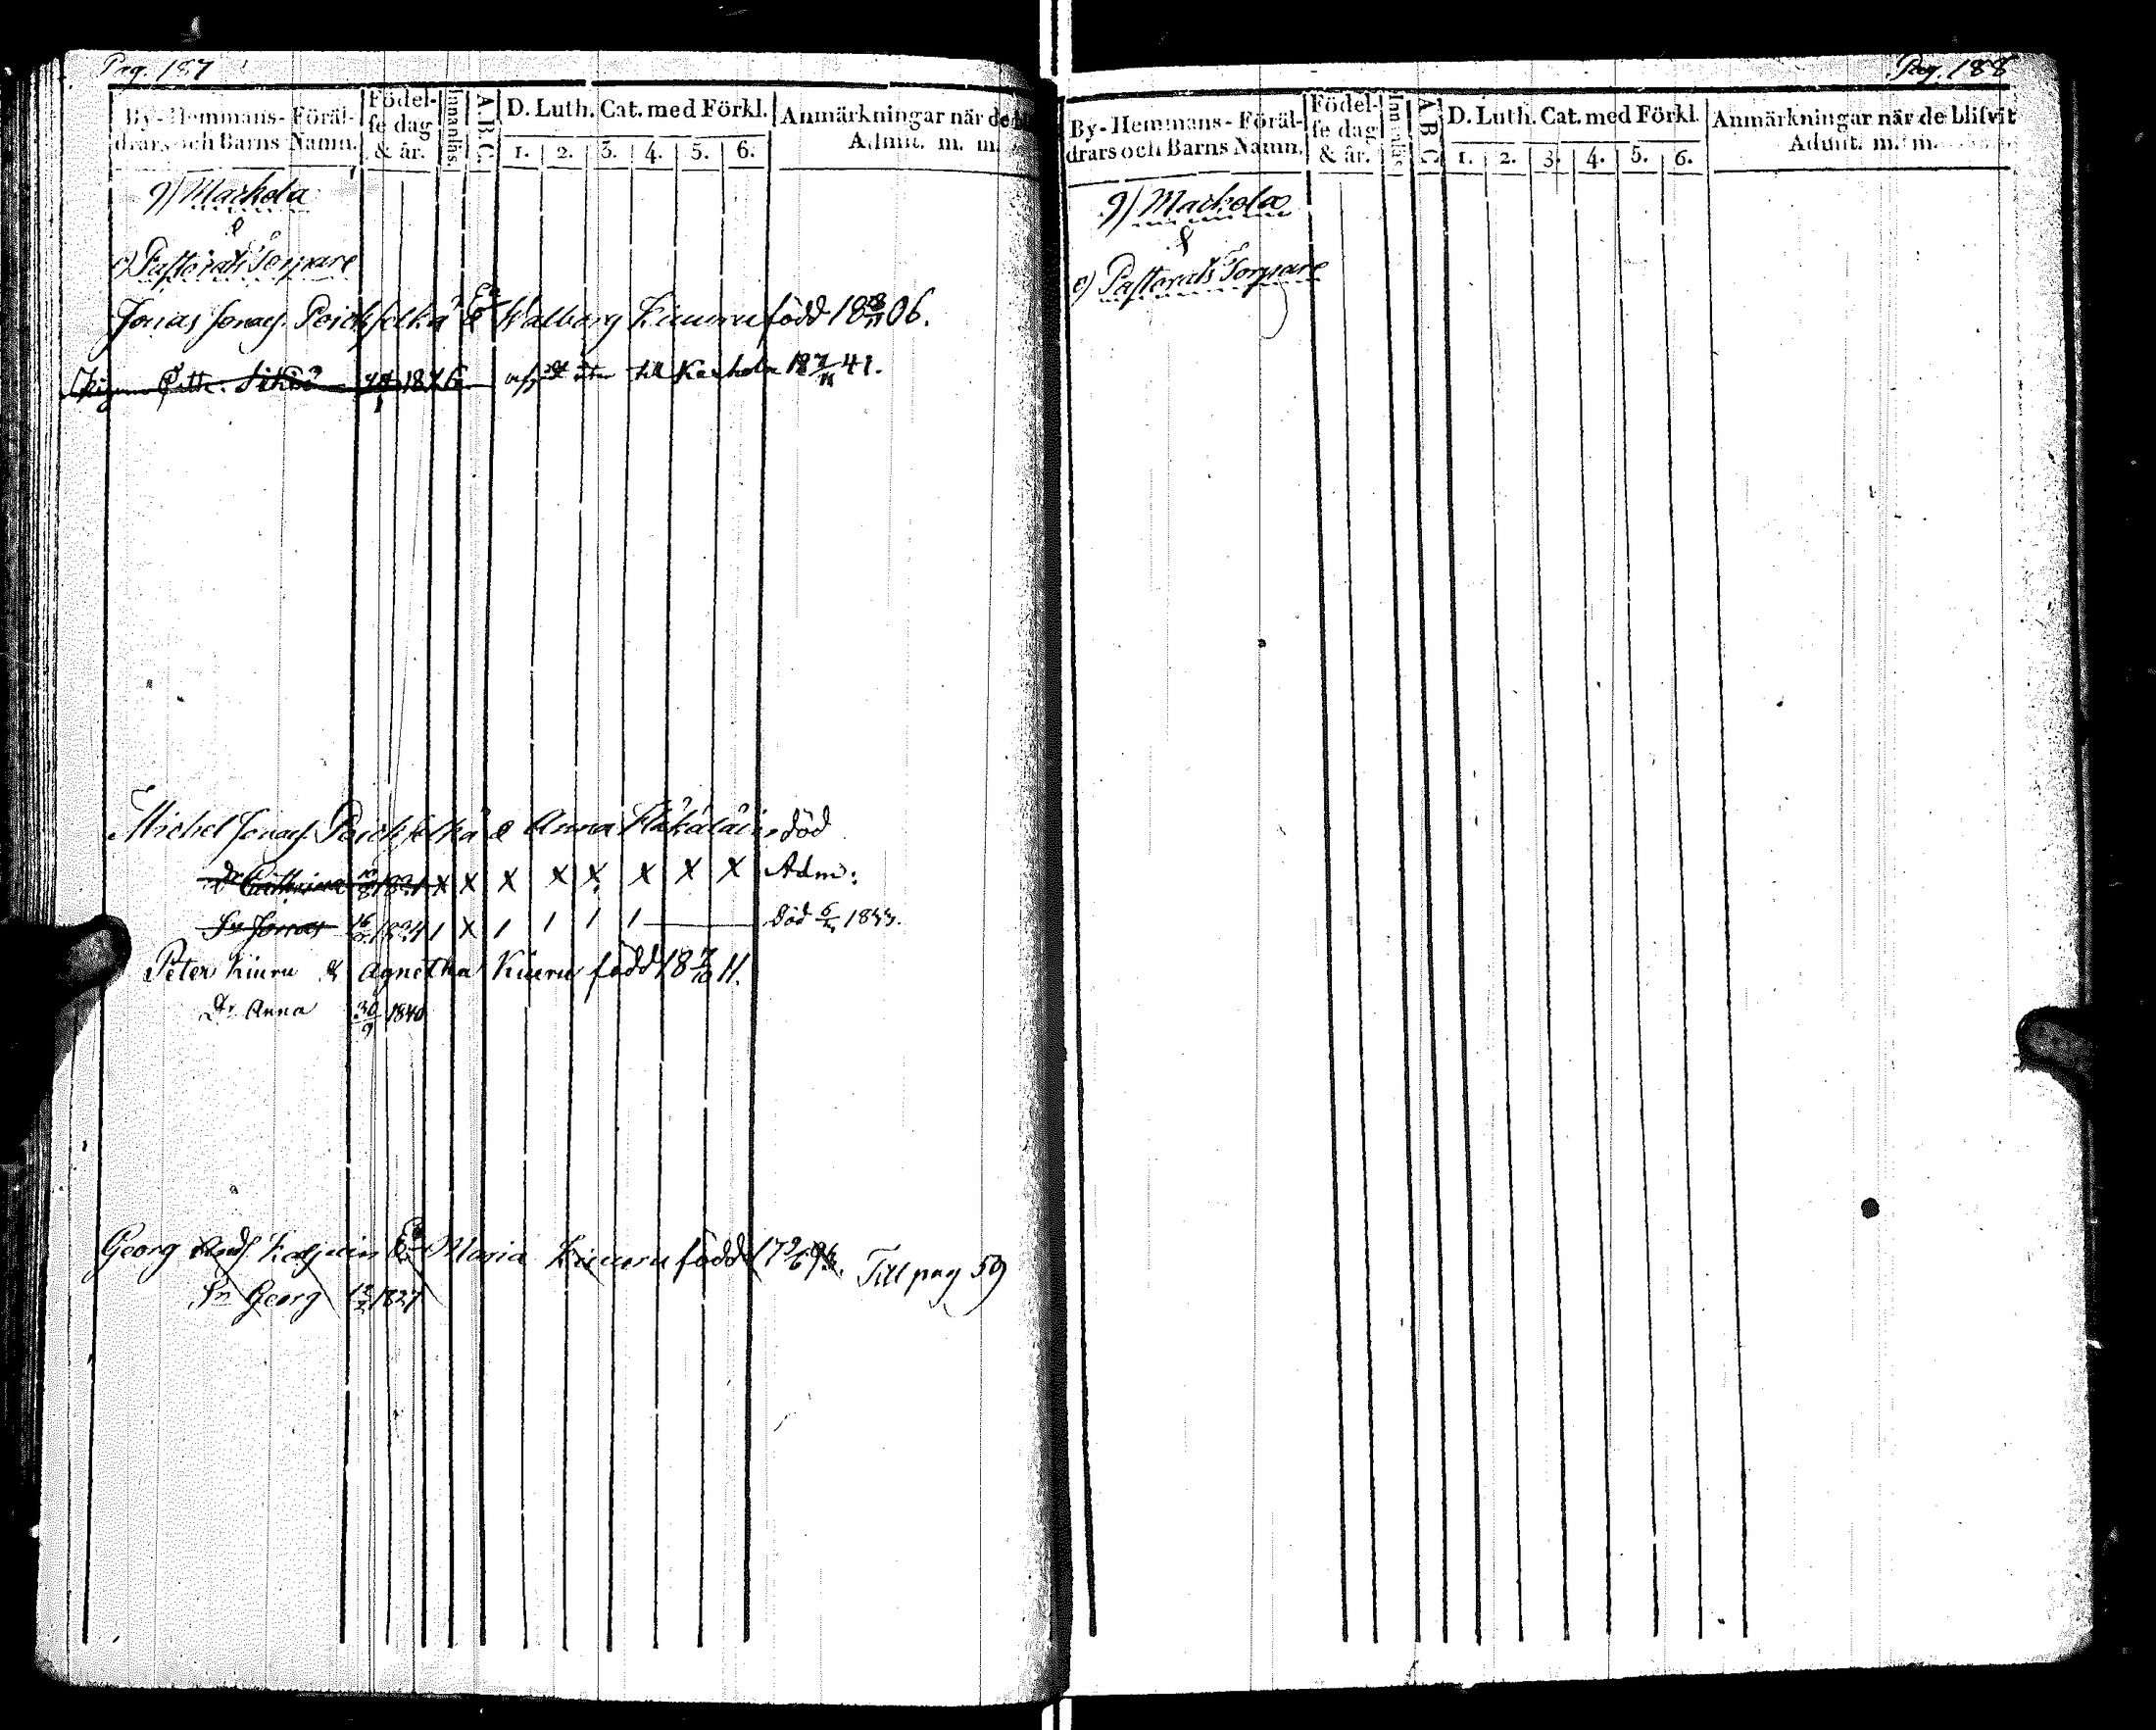 Pag. 187
By-Hemmans-Föräl-
drars och Barns Namn.
Födel-
se dag
& år.
Innanläs.
A.B.C.
D. Luth. Cat. med Förkl.
1. 2. 3. 4. 5. 6.
Anmärkningar när de
Admit. m. m.
9) Markola
&
c) Pastorats Torpare
Jonas Jonass. & Walborg Kiuru född 18 06.
till Karkola 18 41.
Michel Jonass. & Anna död
Dr Cathrina 1821 X X X X X X X X Adm:
Sn Jonas 1824 1 X 1 1 1 1 död 1833.
Peter Kiuru & Agnetha Kiuru född 18 7/10 11.
Dr Anna 30/9 1840
Georg Maria född 17 Till pag 59
Sn Georg 1827
Pag. 188
By-Hemmans-Föräl-
drars och Barns Namn.
Födel-
se dag
& år.
Innanläs.
A B C
D. Luth. Cat. med Förkl.
1. 2. 3. 4. 5. 6.
Anmärkningar när de blifvit
Admit. m. m.
9) Markola
&
c) Pastorats Torpare